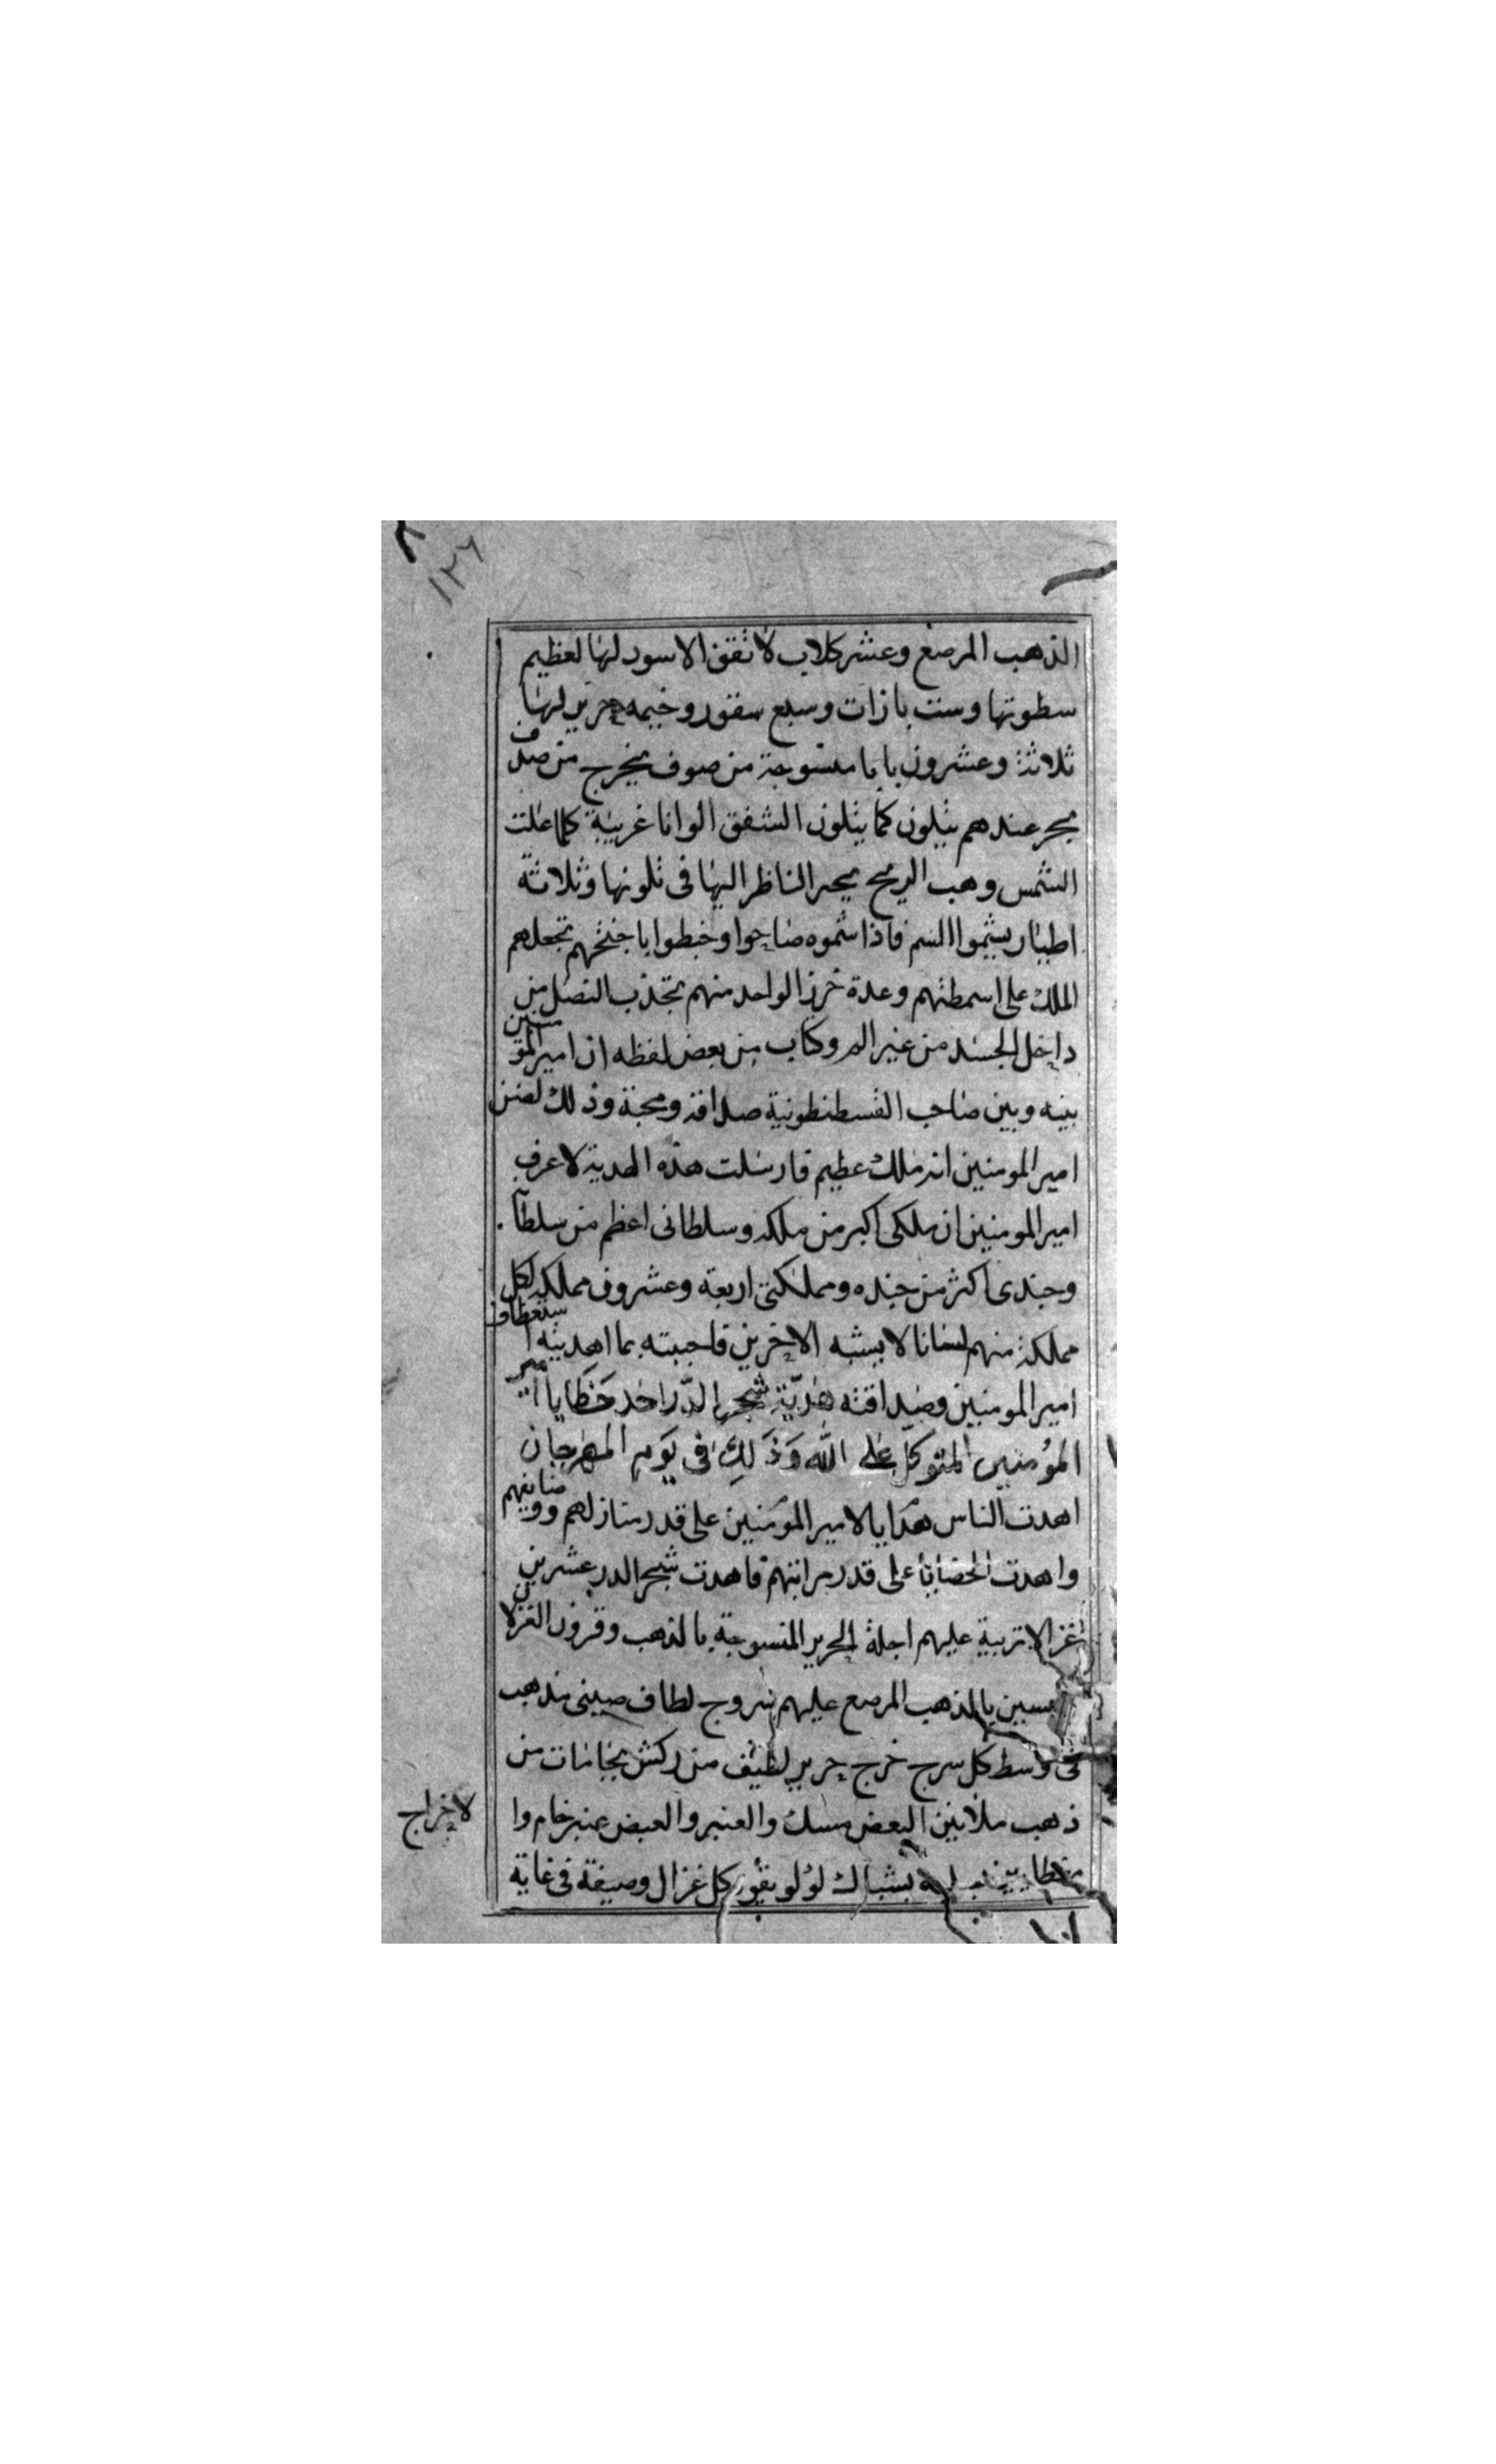 ١٢٦
الذهب المرصع وعشر كلاب لا تقف الاسود لها لعظيم
سطوتها وست بازات وسبع سقور وخيمه حرير لها
ثلاثة وعشرون بابا منسوجة من صوف يخرج من صدف
بحر عندهم يتلون كما يتلون الشفق الوانا غريبة كلما علت
الشمس وهب الريح يحير الناظر اليها فى تلونها وثلاثة
اطيار يشموا السم فاذا شموه صاحوا وخبطوا باجنحتهم تجعلهم
الملك على اسمطتهم وعدة خرز الواحد منهم تجذب النصل من
داخل الجسد من غير الم وكتاب من بعض لفظه ان امير المومنين
بينه وبين صاحب القسطنطونية صداقة ومحبة وذلك لضن
امير المومنين انه ملك عظيم فارسلت هذه الهدية لاعرف
امير المومنين ان ملكى اكبر من ملكه وسلطانى اعظم من سلطا
وجندى اكثر من جنده ومملكتى اربعة وعشروف مملكة لكل
مملكة منهم لسانا لا يشبه الاخرين فاجبته بما اهديته استعطاف
امير المومنين وصداقته هديّة شجر الدّر احد حَظَايا امير
المؤمنين المتوكّل على الله وَذَلِكَ فى يَومِ المهرجان
اهدت الناس هدايا لامير المؤمنين على قدر منازلهم ووضايفهم
واهدت الحضايا على قدر مراتبهم فاهدت شجر الدر عشرين
غزالا تربية عليهم اجلة الحرير المنسوجة بالذهب وقرون الغزلان
بالذهب المرصع عليهم سروج لطاف صينى مذهب
فى وسط كل سرج خرج حرير لطيف مزركش بخامات من
ذهب ملانين البعض مسك والعنبر والعبض عنبر خام وا
بشباك لؤلو يقود كل غزال وصيفة فى غاية
لاخراج